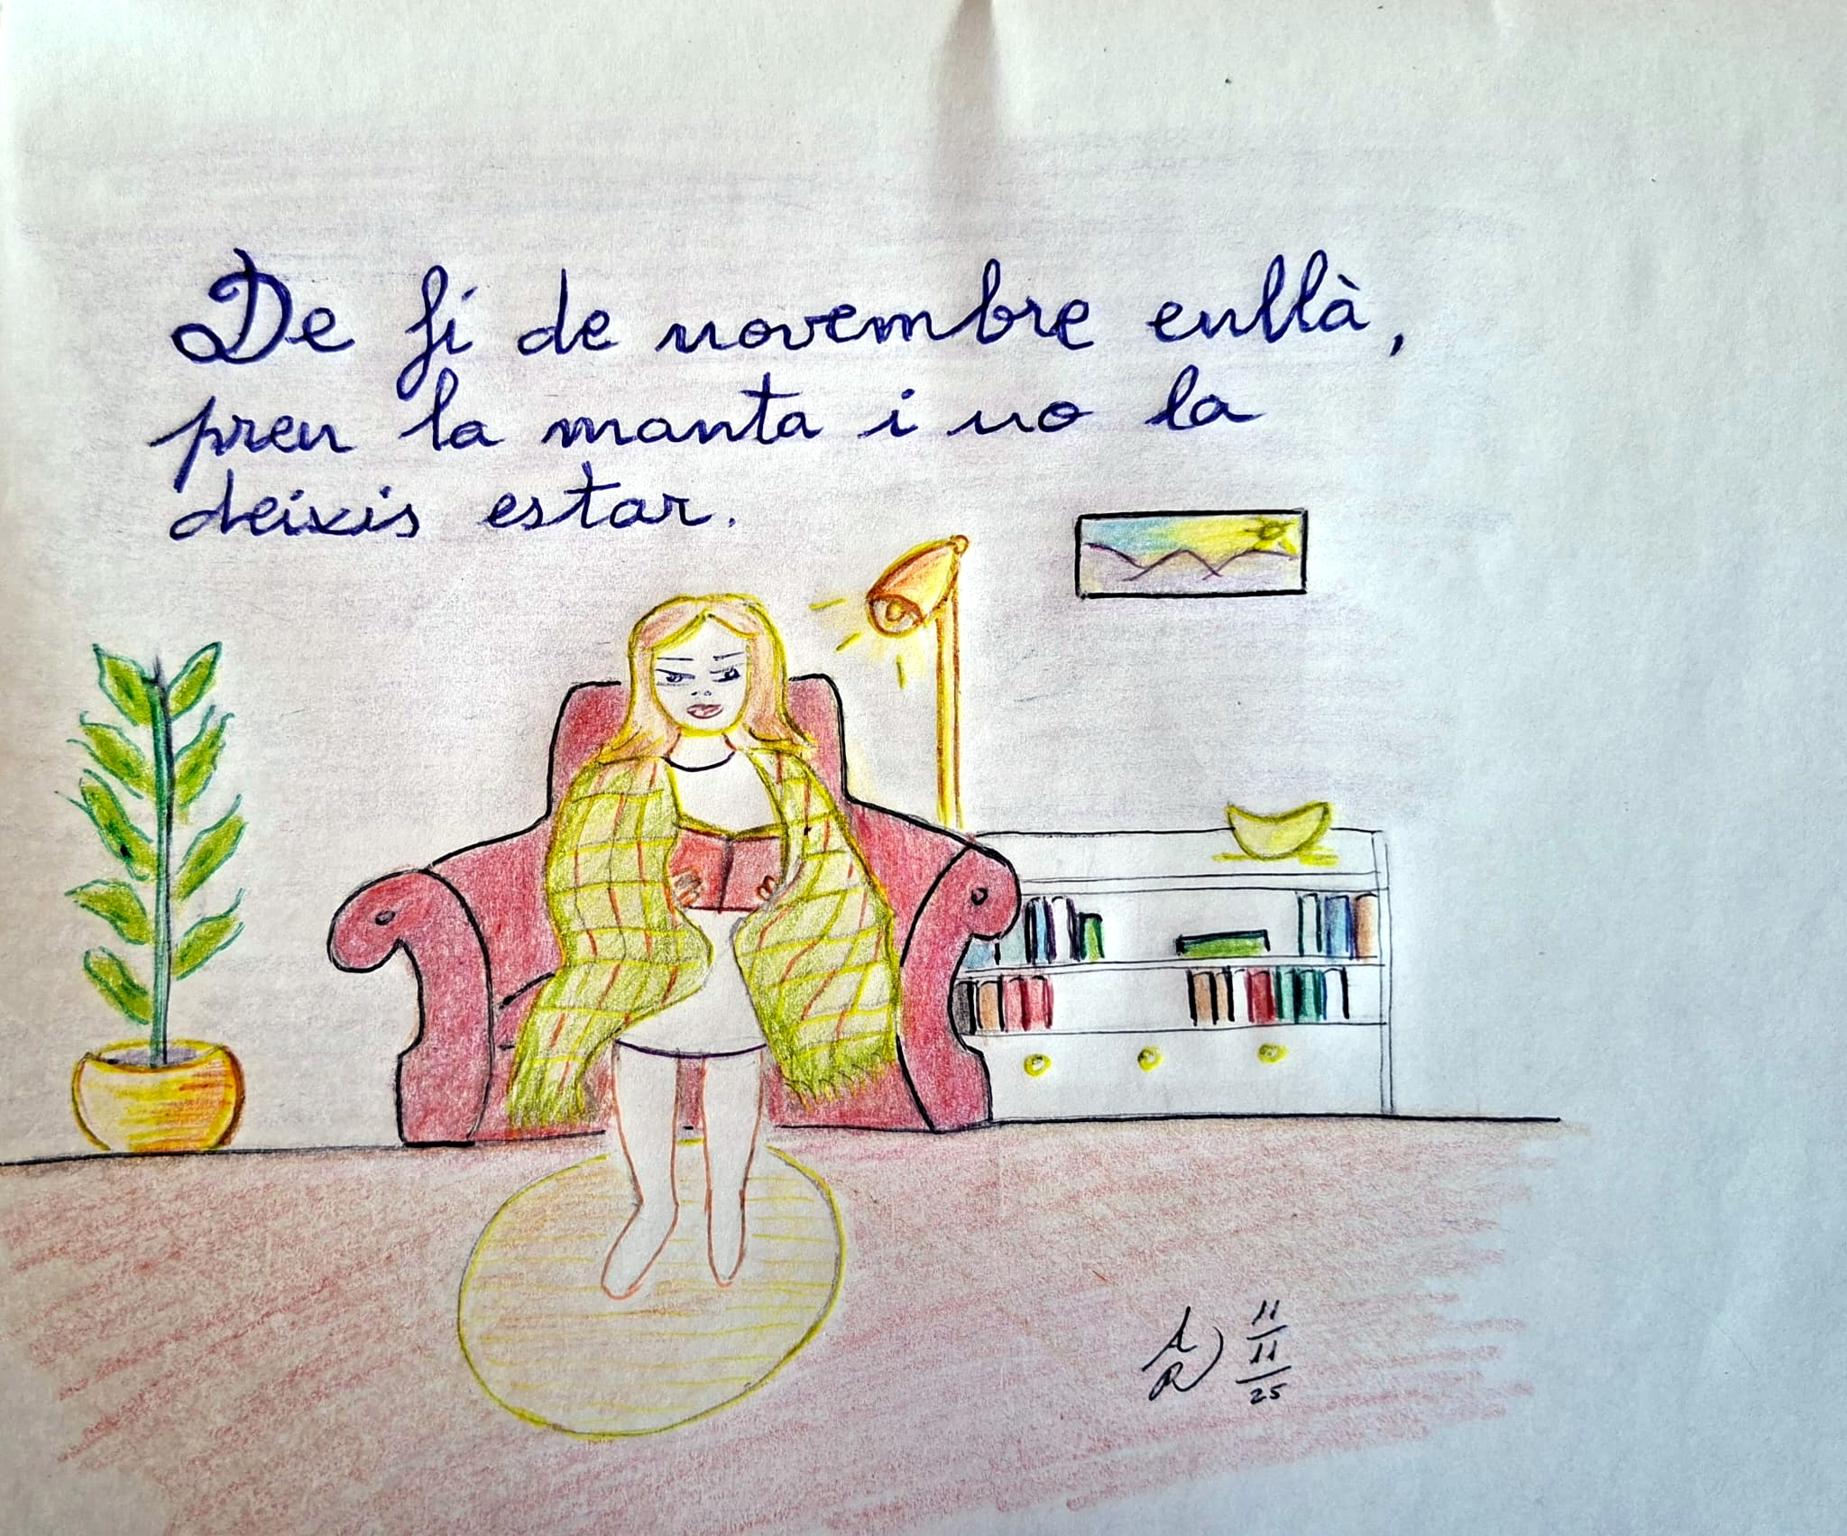 De fi de novembre enllà,
pren la manta i no la
deixis estar.
AR 11/11/25